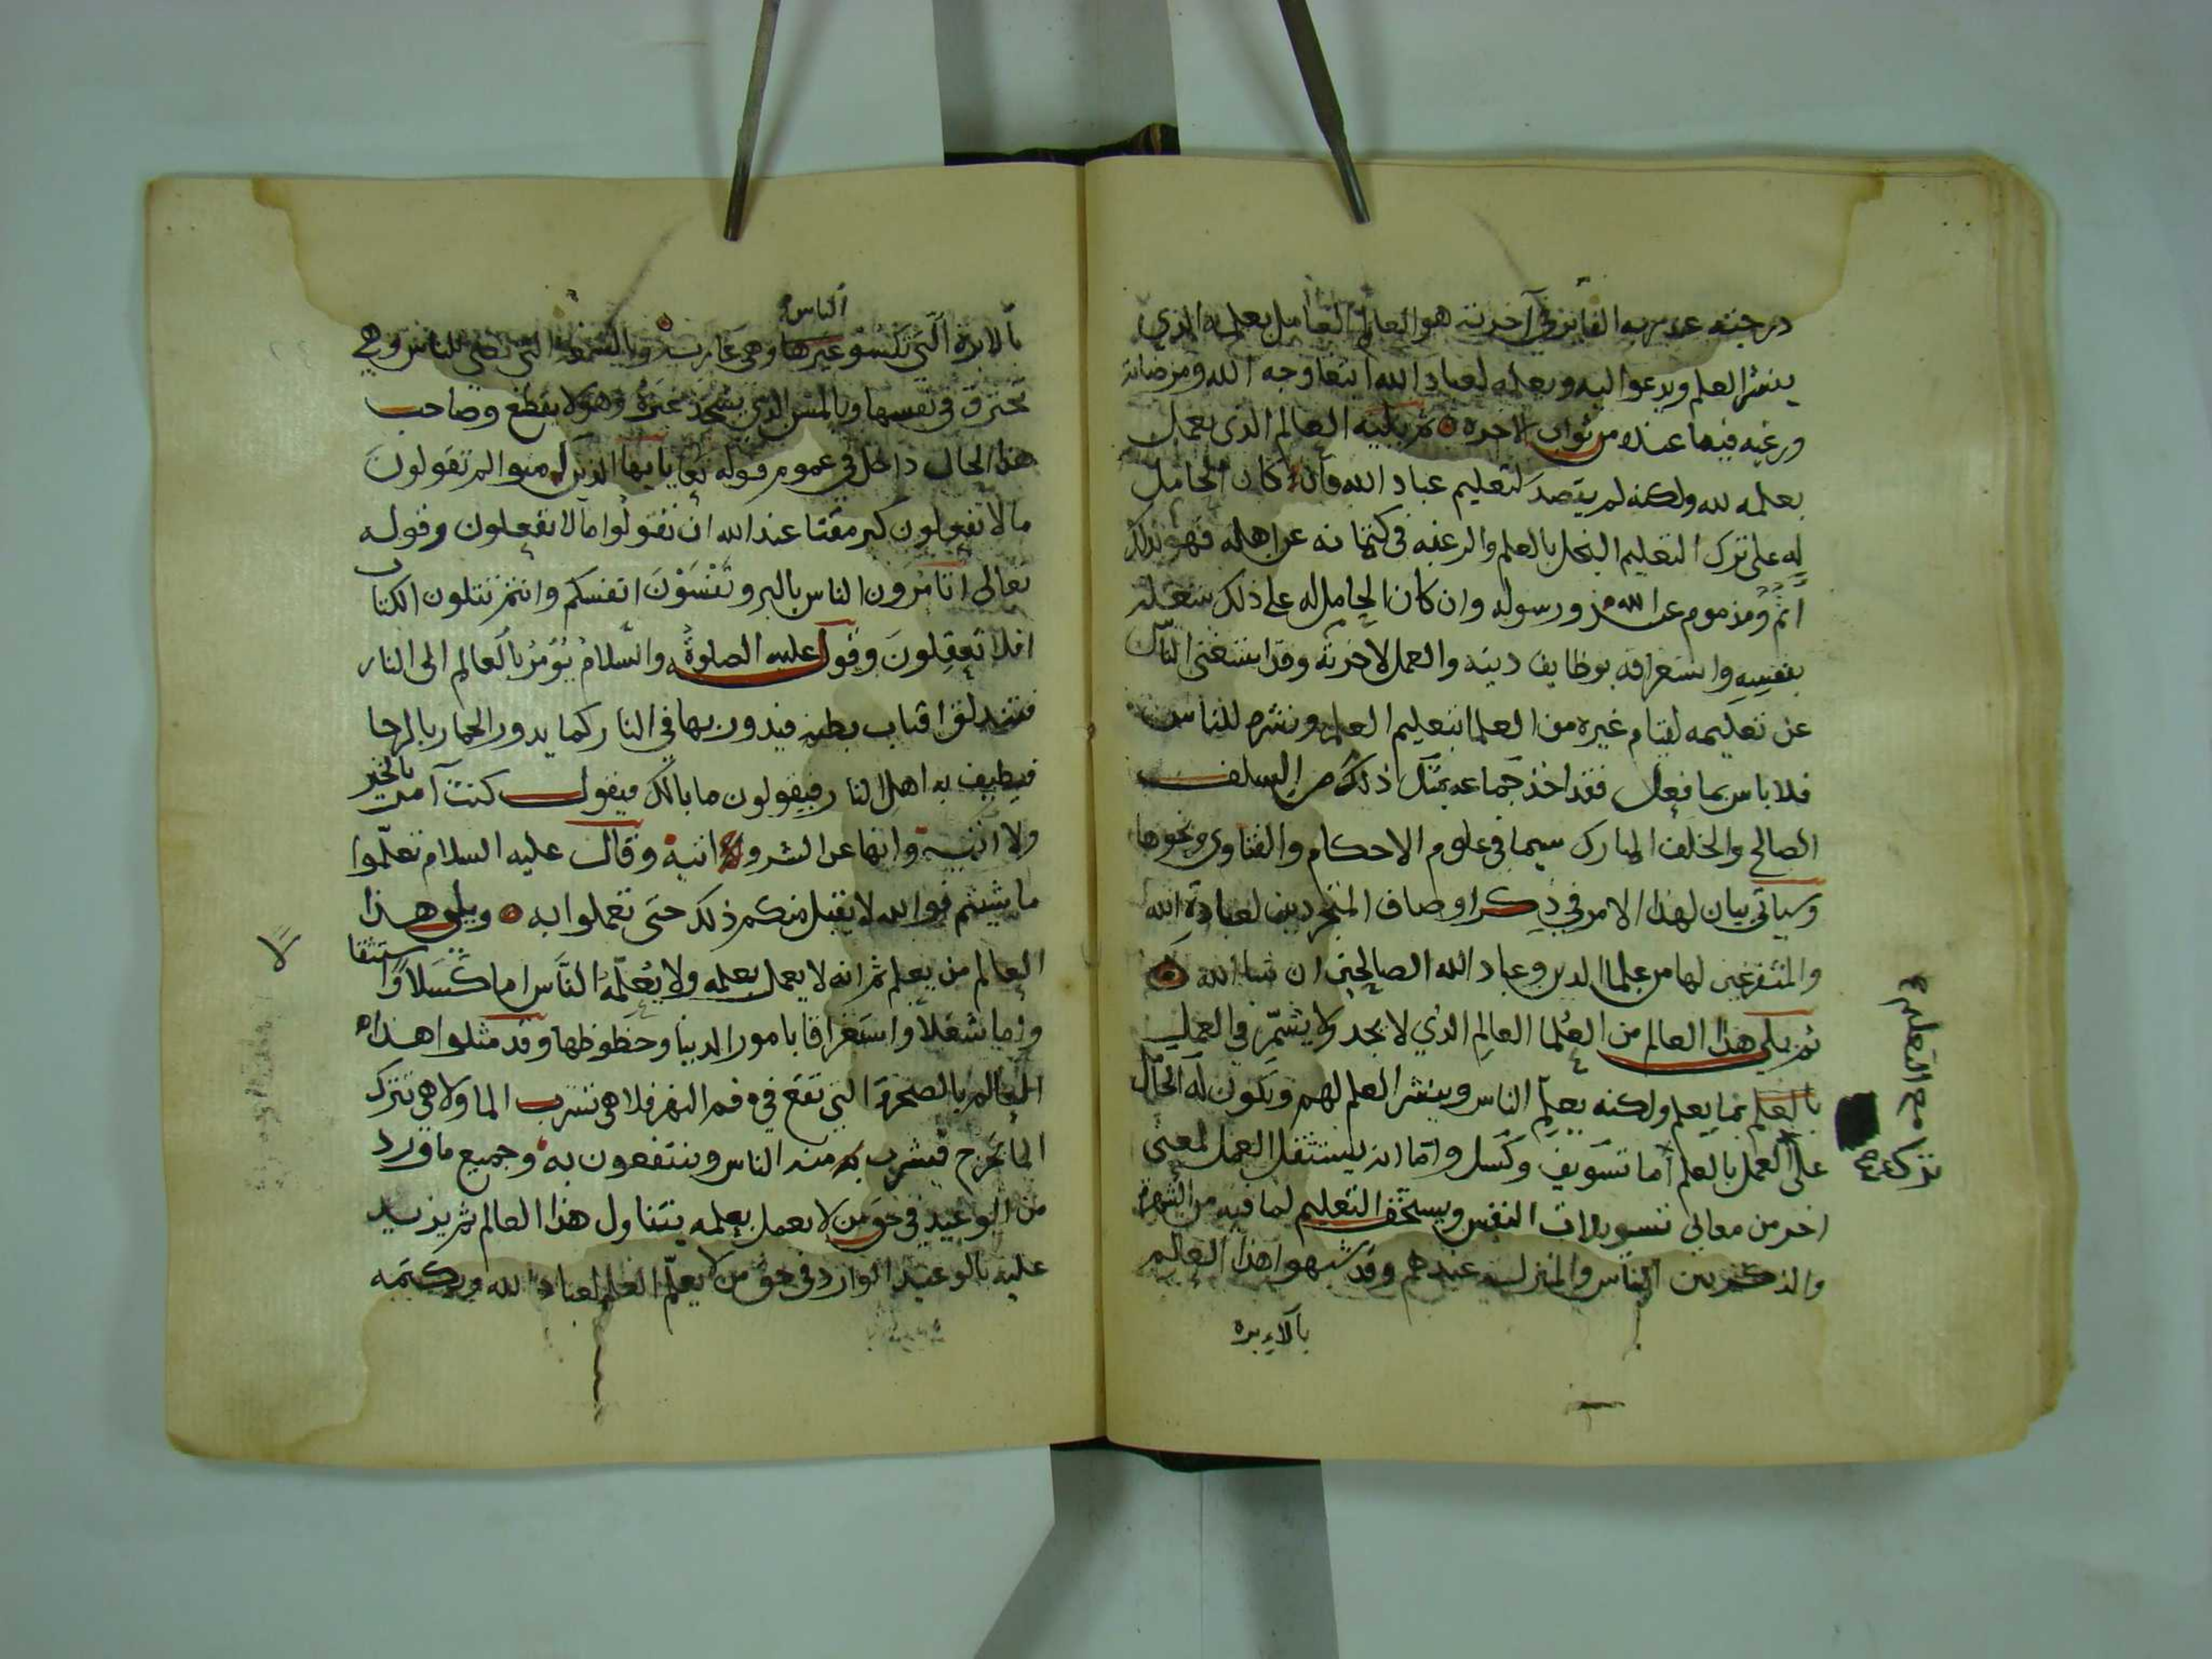 درجته عند ربه الفايز في آخرته هو العالم العامل بعلمه الذي
ينشر العلم ويدعوا اليه ويعلمه لعباد الله ابتغا وجه الله ومرضاته
ورغبه فيما عنده من ثواب الاخره ثم يليه العالم الذي يعمل
بعلمه لله ولكنه لم يقصد لتعليم عباد الله فان كان الحامل
له على ترك التعليم البخل بالعلم والرغبه في كتمانه عن اهله فهو بذلك
آثم ومذموم عند الله ورسوله وان كان الحامل له على ذلك شغله
بنفسه واستغراقه بوظايف دينه والعمل لاخرته وقد استغنى الناس
عن تعليمه لقيام غيره من العلما بتعليم العلم ونشره للناس
فلا باس بما فعل فقد اخذ جماعه بمثل ذلك من السلف
الصالح والخلف المبارك سيما في علوم الاحكام والفتاوى ونحوها
وسياتي بيان لهذا الامر في ذكر اوصاف المتجردين لعبادة الله
والمتفرغين لها من علما الدين وعباد الله الصالحين ان شا الله
ثم يلي هذا العالم من العلما العالم الذي لا يجد ولا يشمّر في العمل
بالعلم بما يعلم ولكنه يعلم الناس وينشر العلم لهم ويكون له الحال
على العمل بالعلم أما تسويف وكسل واما انه يستثقل العمل لمعنى
اخر من معاني تسويلات النفس ويستخف التعليم لما فيه من الشهرة
والذكر بين الناس والمنزلة عندهم وقد شبهوا هذا العالم
بالاءبره
ترك مع التعليم
الناس
بالابرة الّتي تكسو غيرها وهي عارية وبالشمعة التي تضي للناس وهي
تحترق في نفسها وبالمسن الذي يشحذ غيره وهو لا يقطع وصاحب
هذا الحال داخل في عموم قوله تعا يايها الذين آمنوا لم تقولون
مالا تفعلون كبر مقتا عند الله ان تقولوا مالا تفعلون وقوله
تعالى اتامرون الناس بالبر وتنسون انفسكم وانتم تتلون الكتاب
افلا تعقلون وقول عليه الصلوة والسّلام يؤمر بالعالم الى النار
فتندلق اقتاب بطنه فيدور بها في النار كما يدور الحمار بالرحا
فيطيف به اهل النار فيقولون ما بالك فيقول كنت آمر بالخير
ولا آتيه وانها عن الشر و اتيه وقال عليه السلام تعلّموا
ما شيتم فوالله لا يقبل منكم ذلك حتى تعملوا به ويلي هذا
العالم من يعلم ثم انه لا يعمل بعلمه ولا يُعلّمه النّاس اما كسلا و استثقا
لا
واما شغلا واستغراقا بامور الدنيا وحظوظها وقد مثلوا هذا
العالم بالصخرة التي تقع في فم النهر فلا هي تشرب الما ولا هي تترك
الما يخرج فيشرب منه الناس وينتفعون به وجميع ما ورد
من الوعيد في حق من لا يعمل بعلمه يتناول هذا العالم ثم يزيد
عليه بالوعيد الوارد في حق من لا يعلّم العلم لعباد الله ويكتمه